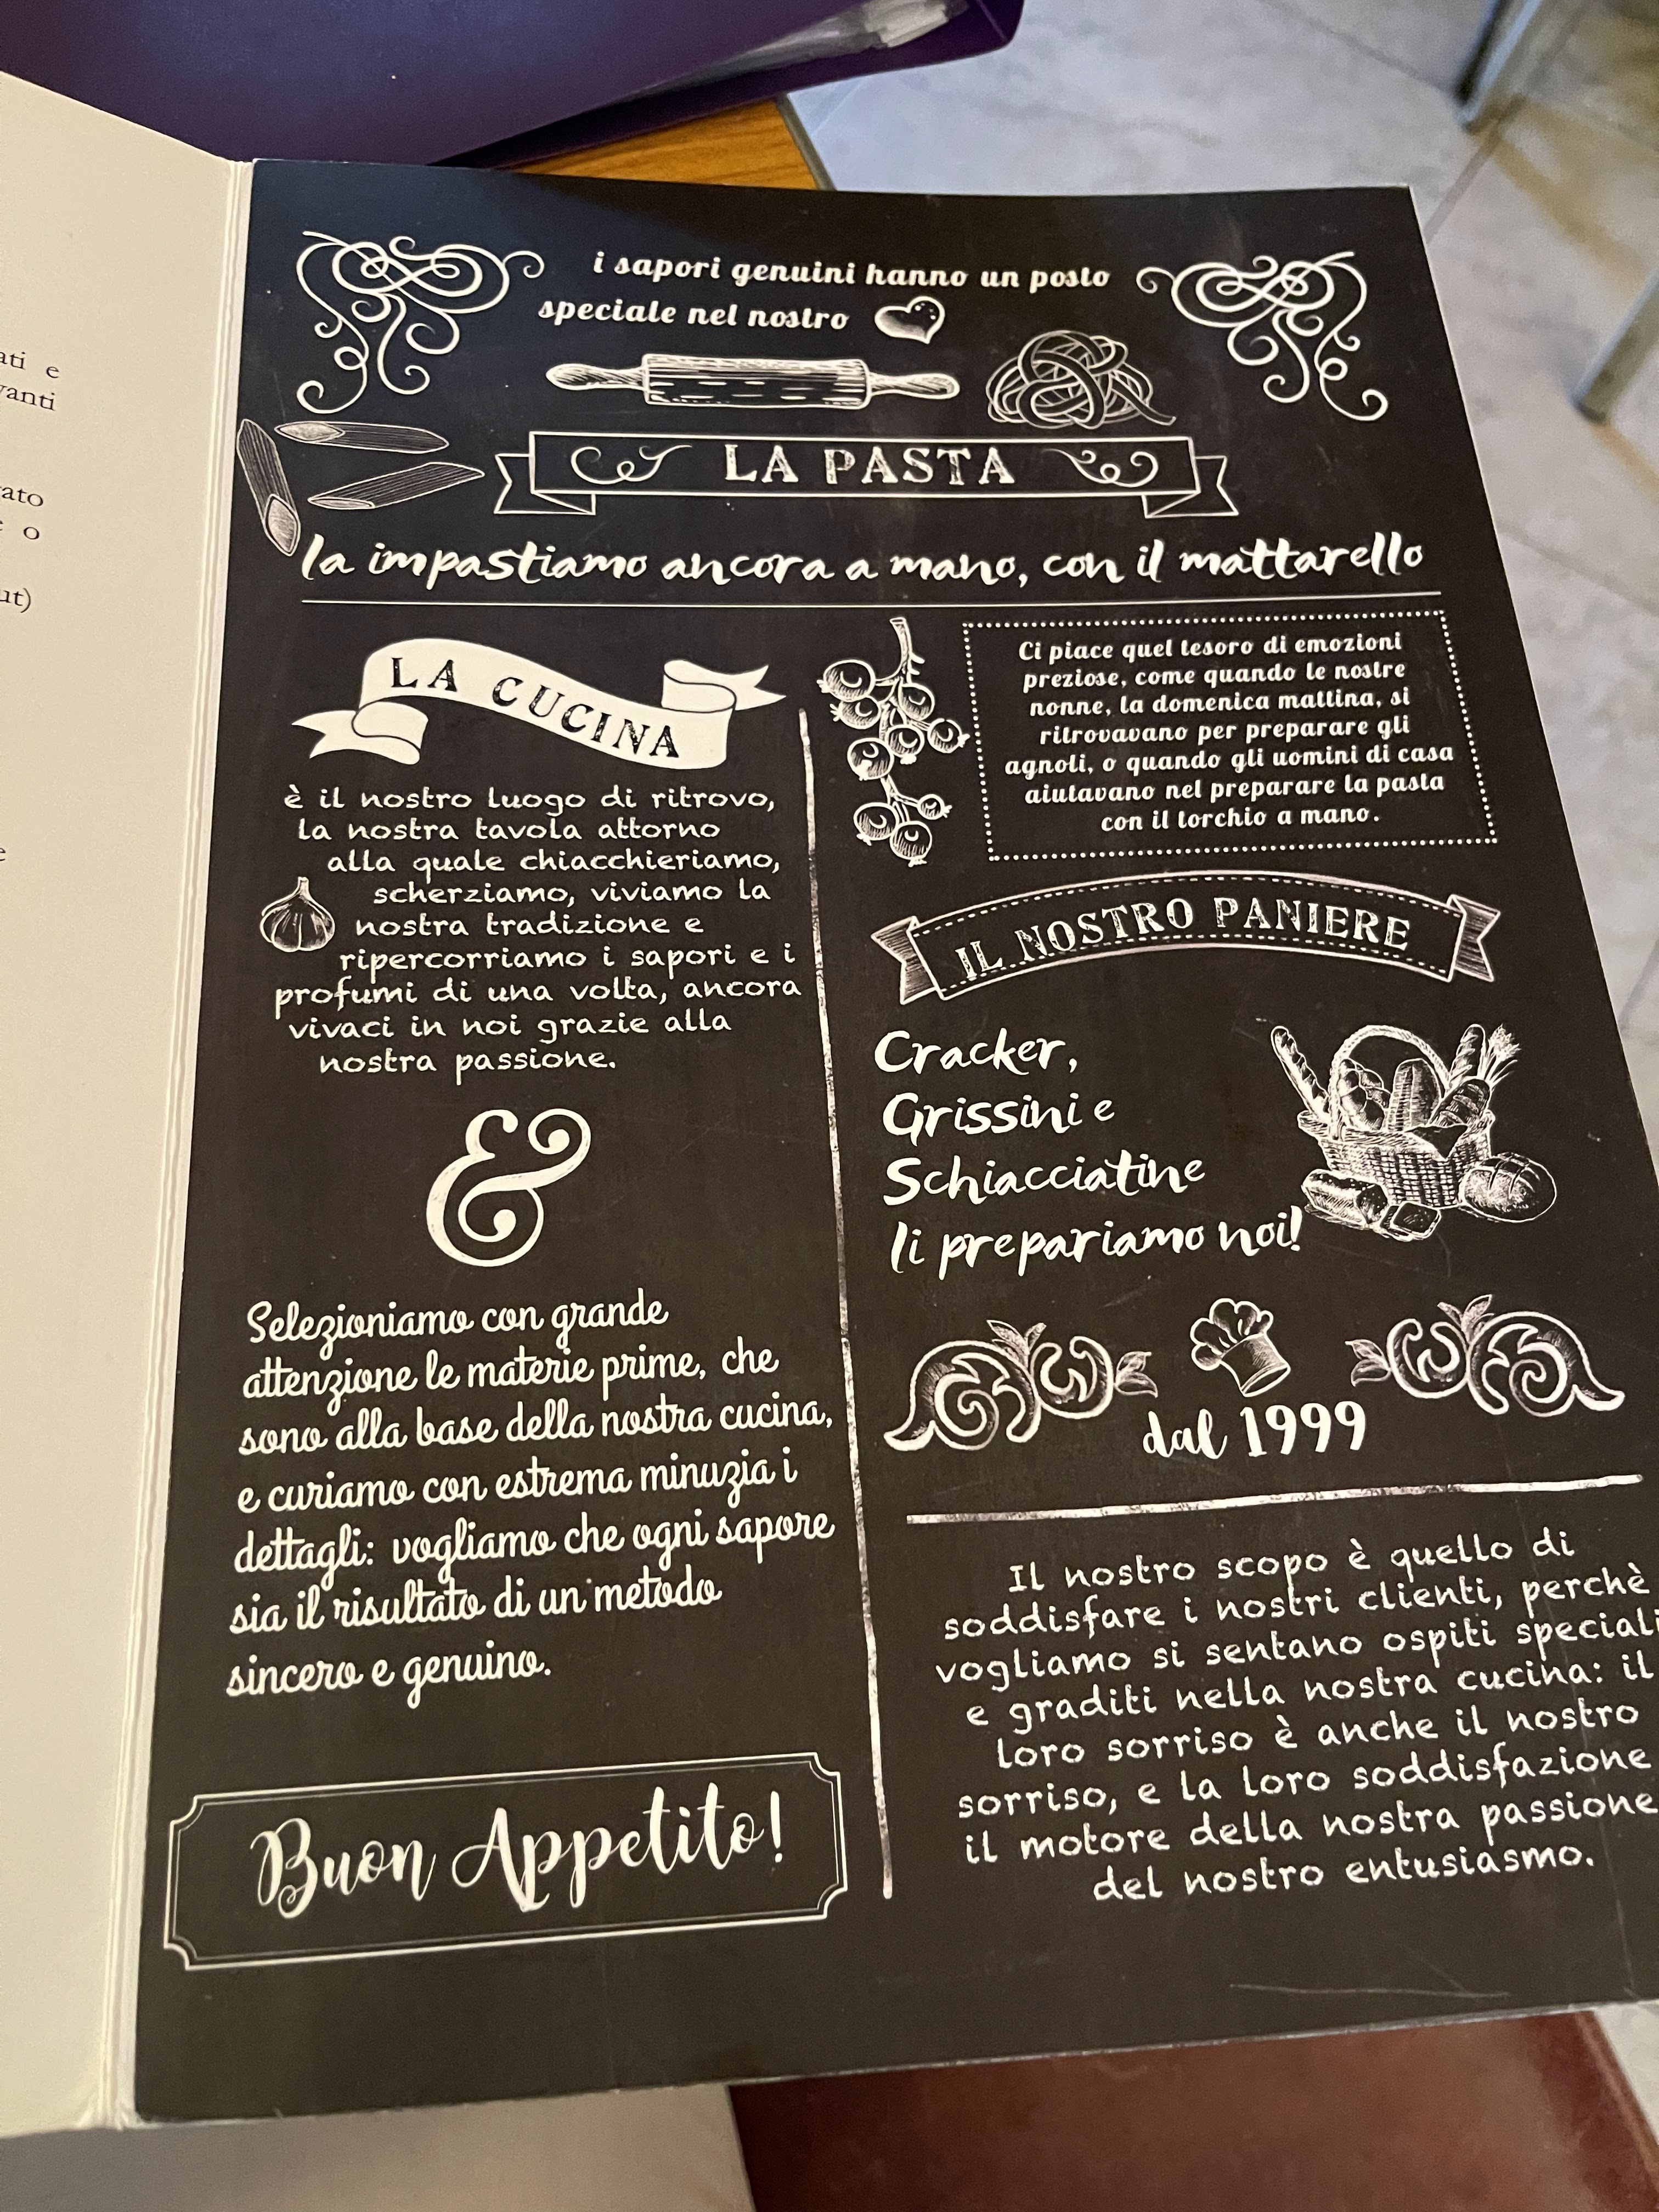 ati e
vanti
ato
e o
ut)
e
i sapori genuini hanno un posto
speciale nel nostro
LA PASTA
la impastiamo ancora a mano, con il mattarello
LA CUCINA
è il nostro luogo di ritrovo,
la nostra tavola attorno
alla quale chiacchieriamo,
scherziamo, viviamo la
nostra tradizione e
ripercorriamo i sapori e i
profumi di una volta, ancora
vivaci in noi grazie alla
nostra passione.
&
Selezioniamo con grande
attenzione le materie prime, che
sono alla base della nostra cucina,
e curiamo con estrema minuzia i
dettagli: vogliamo che ogni sapore
sia il risultato di un metodo
sincero e genuino.
Buon Appetito!
Ci piace quel tesoro di emozioni
preziose, come quando le nostre
nonne, la domenica mattina, si
ritrovavano per preparare gli
agnoli, o quando gli uomini di casa
aiutavano nel preparare la pasta
con il torchio a mano.
IL NOSTRO PANIERE
Cracker,
Grissini e
Schiacciatine
li prepariamo noi!
dal 1999
Il nostro scopo è quello di
soddisfare i nostri clienti, perchè
vogliamo si sentano ospiti speciali
e graditi nella nostra cucina: il
loro sorriso è anche il nostro
sorriso, e la loro soddisfazione
il motore della nostra passione
del nostro entusiasmo.